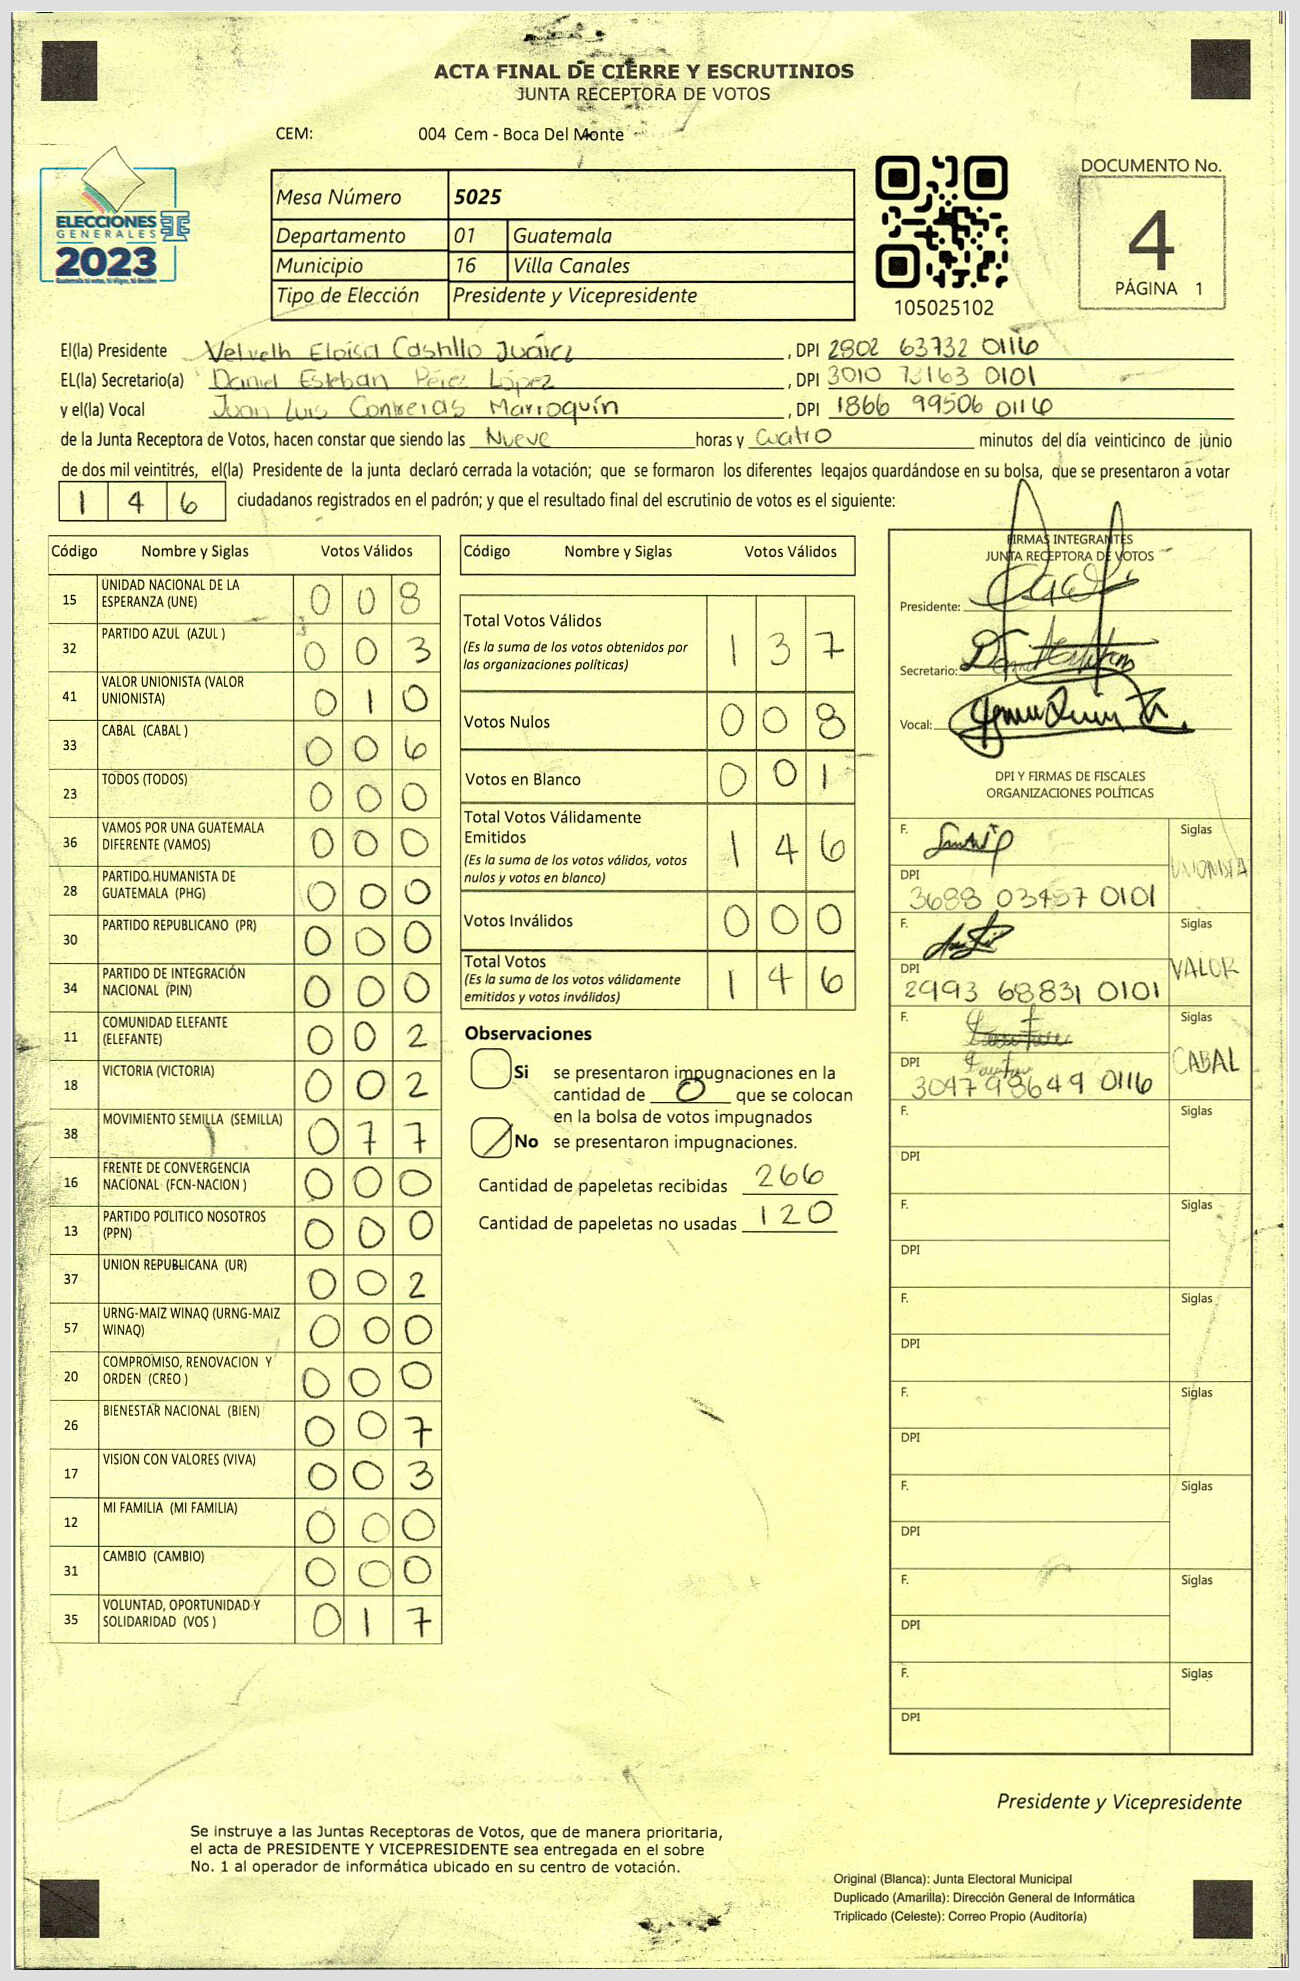 ACTA FINAL DE CIERRE Y ESCRUTINIOS
JUNTA RECEPTORA DE VOTOS
CEM: 004 Cem - Boca Del Monte
ELECCIONES
GENERALES
2023
Mesa Número 5025
Departamento 01 Guatemala
Municipio 16 Villa Canales
Tipo de Elección Presidente y Vicepresidente
105025102
DOCUMENTO No.
4
PÁGINA 1
El(la) Presidente Velveth Eloisa Castillo Juárez, DPI 2802 63732 0116
EL(la) Secretario(a) Daniel Esteban Pérez López, DPI 3010 73163 0101
y el(la) Vocal Juan Luis Contreras Marroquín, DPI 1866 99506 0116
de la Junta Receptora de Votos, hacen constar que siendo las Nueve horas y Cuatro minutos del día veinticinco de junio
de dos mil veintitrés, el(la) Presidente de la junta declaró cerrada la votación; que se formaron los diferentes legajos guardándose en su bolsa, que se presentaron a votar
1 4 6 ciudadanos registrados en el padrón; y que el resultado final del escrutinio de votos es el siguiente:
Código Nombre y Siglas Votos Válidos
15 UNIDAD NACIONAL DE LA
ESPERANZA (UNE) 0 0 8
32 PARTIDO AZUL (AZUL ) 0 0 3
41 VALOR UNIONISTA (VALOR
UNIONISTA) 0 1 0
33 CABAL (CABAL ) 0 0 6
23 TODOS (TODOS) 0 0 0
36 VAMOS POR UNA GUATEMALA
DIFERENTE (VAMOS) 0 0 0
28 PARTIDO HUMANISTA DE
GUATEMALA (PHG) 0 0 0
30 PARTIDO REPUBLICANO (PR) 0 0 0
34 PARTIDO DE INTEGRACIÓN
NACIONAL (PIN) 0 0 0
11 COMUNIDAD ELEFANTE
(ELEFANTE) 0 0 2
18 VICTORIA (VICTORIA) 0 0 2
38 MOVIMIENTO SEMILLA (SEMILLA) 0 7 7
16 FRENTE DE CONVERGENCIA
NACIONAL (FCN-NACION ) 0 0 0
13 PARTIDO POLITICO NOSOTROS
(PPN) 0 0 0
37 UNION REPUBLICANA (UR) 0 0 2
57 URNG-MAIZ WINAQ (URNG-MAIZ
WINAQ) 0 0 0
20 COMPROMISO, RENOVACION Y
ORDEN (CREO ) 0 0 0
26 BIENESTAR NACIONAL (BIEN) 0 0 7
17 VISION CON VALORES (VIVA) 0 0 3
12 MI FAMILIA (MI FAMILIA) 0 0 0
31 CAMBIO (CAMBIO) 0 0 0
35 VOLUNTAD, OPORTUNIDAD Y
SOLIDARIDAD (VOS ) 0 1 7
Código Nombre y Siglas Votos Válidos
Total Votos Válidos
(Es la suma de los votos obtenidos por
las organizaciones políticas) 1 3 7
Votos Nulos 0 0 8
Votos en Blanco 0 0 1
Total Votos Válidamente
Emitidos
(Es la suma de los votos válidos, votos
nulos y votos en blanco) 1 4 6
Votos Inválidos 0 0 0
Total Votos
(Es la suma de los votos válidamente
emitidos y votos inválidos) 1 4 6
Observaciones
Si se presentaron impugnaciones en la
cantidad de 0 que se colocan
en la bolsa de votos impugnados
No se presentaron impugnaciones.
Cantidad de papeletas recibidas 266
Cantidad de papeletas no usadas 120
FIRMAS INTEGRANTES
JUNTA RECEPTORA DE VOTOS
Presidente:
Secretario:
Vocal:
DPI Y FIRMAS DE FISCALES
ORGANIZACIONES POLÍTICAS
F. Siglas
UNIONISTA
DPI
3688 03457 0101
F. Siglas
VALOR
DPI
2993 68831 0101
F. Siglas
CABAL
DPI
3047 98649 0116
F. Siglas
DPI
F. Siglas
DPI
F. Siglas
DPI
F. Siglas
DPI
F. Siglas
DPI
F. Siglas
DPI
F. Siglas
DPI
Presidente y Vicepresidente
Se instruye a las Juntas Receptoras de Votos, que de manera prioritaria,
el acta de PRESIDENTE Y VICEPRESIDENTE sea entregada en el sobre
No. 1 al operador de informática ubicado en su centro de votación.
Original (Blanca): Junta Electoral Municipal
Duplicado (Amarilla): Dirección General de Informática
Triplicado (Celeste): Correo Propio (Auditoría)